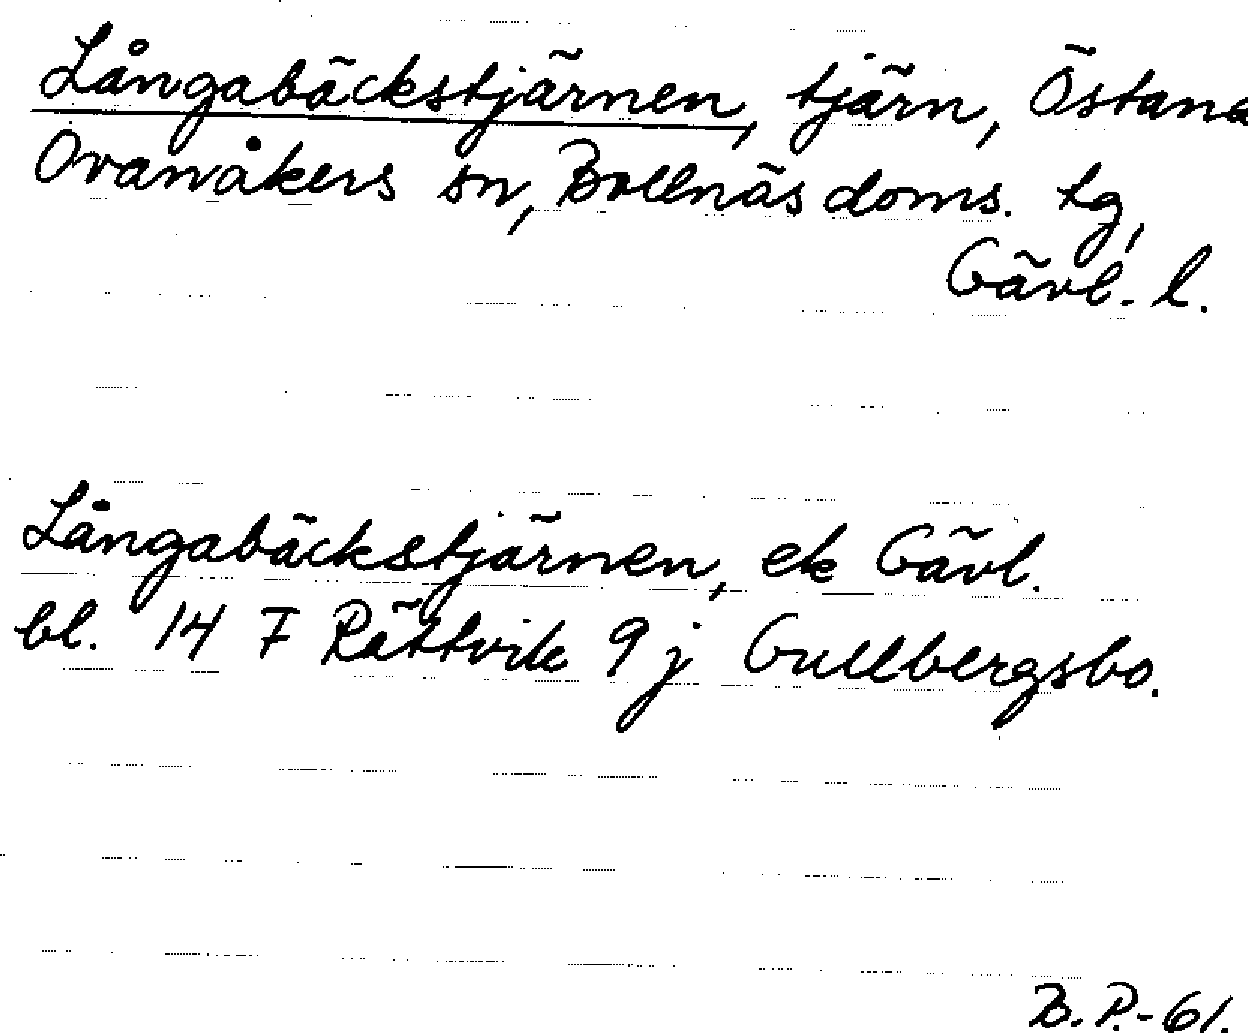 Långabäckstjärnen, tjärn, Östana
Ovanåkers sn, Bollnäs doms. tg,
Gävl. l.
Långabäckstjärnen, ek Gävl.
bl. 14 F Rättvik 9 j Gullbergsbo.
B. P. - 61.